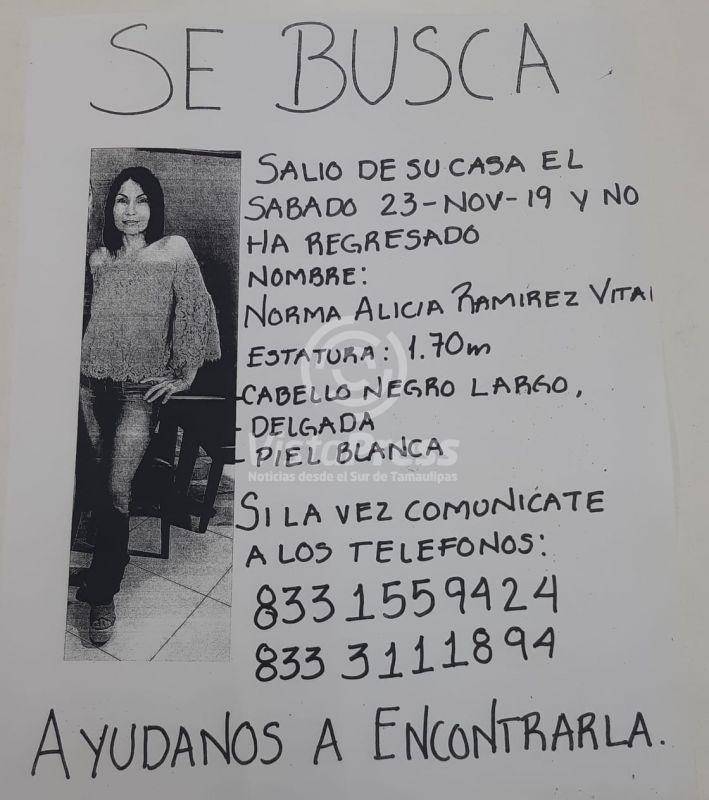 SE BUSCA
SALIO DE SU CASA EL
SABADO 23-NOV-19 Y NO
HA REGRESADO
NOMBRE:
NORMA ALICIA RAMIREZ VITAL
ESTATURA: 1.70m
-CABELLO NEGRO LARGO,
- DELGADA
- PIEL BLANCA
VistaPress
Noticias desde el Sur de Tamaulipas
SI LA VEZ COMUNICATE
A LOS TELEFONOS:
833 1559424
833 3111894
AYUDANOS A ENCONTRARLA.